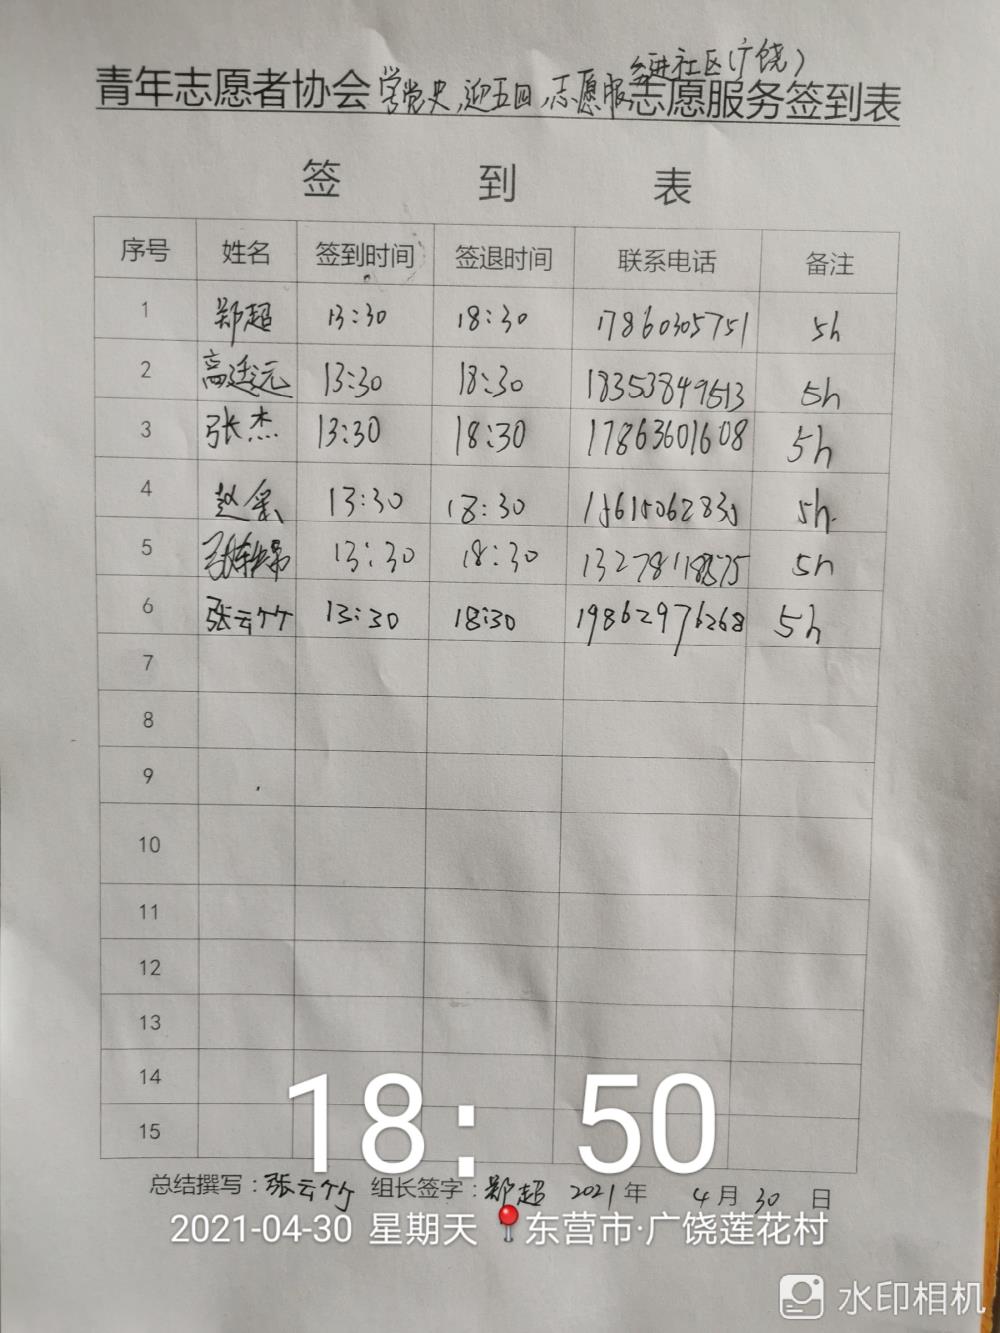 走进社区(广饶)
青年志愿者协会学党史,迎五四,志愿服志愿服务签到表
签 到 表
序号 姓名 签到时间 签退时间 联系电话 备注
1 郑超 13:30 18:30 17860305751 5h
2 高廷元 13:30 18:30 18353849513 5h
3 张杰 13:30 18:30 17863601608 5h
4 赵 13:30 18:30 5h.
5 13:30 18:30 5h
6 张云竹 13:30 18:30 19862976268 5h
7
8
9
10
11
12
13
14
15
18:50
总结撰写:张云竹 组长签字:郑超 2021年 4月30日
2021-04-30 星期天 东营市·广饶莲花村
水印相机